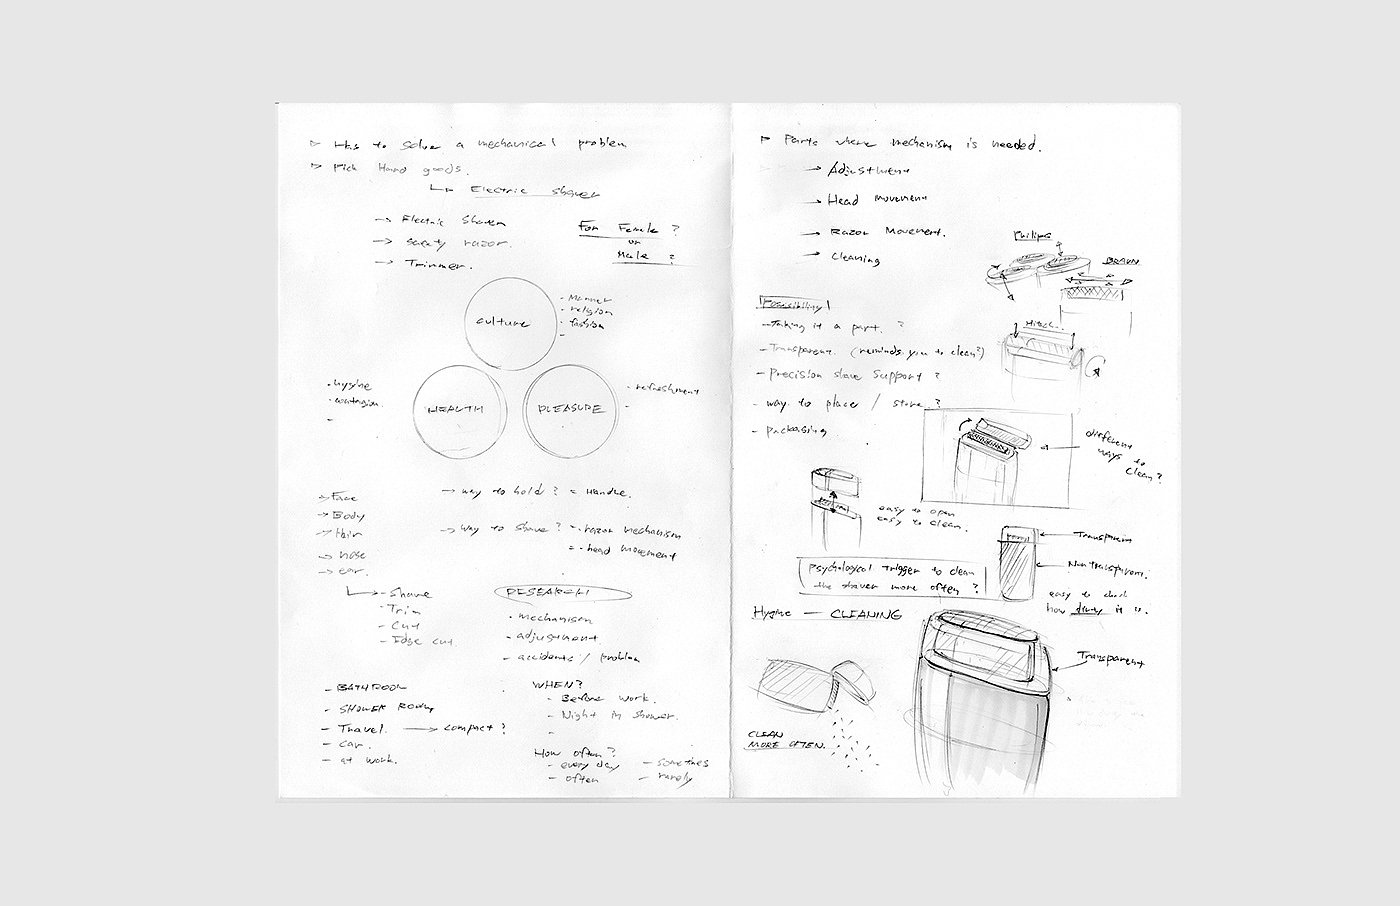 ▷ Has to solve a mechanical problem
▷ Pick Hand goods.
↳ Electric Shaver
→ Electric Shaver
→ safety razor.
→ Trimmer.
For Female ?
or
Male ?
Culture
- Manner
- religion
- fashion
-
HEALTH
PLEASURE
• hygine
• contagion.
-
- refreshment
-
→ Face
→ Body
→ Hair
→ nose
→ ear.
→ way to hold ? = Handle.
→ way to shave ? = • razor mechanism
= • head movement
↳ - Shave
- Trim
- Cut
- Edge cut
RESEARCH
• mechanism
- adjustment
- accidents / problem
- BATHROOM
- SHOWER ROOM
- Travel. → compact ?
- car.
- at work.
WHEN?
- Before work.
- Night in shower.
-
How often ?
- every day
- often
- sometimes
- rarely
▷ Parts where mechanism is needed.
→ Adjustment
→ Head movement
→ Razor Movement.
→ Cleaning
Philips
BRAUN
Possibility
- Taking it a part. ?
- Transparent. (reminds you to clean?)
- Precision shave support ?
- way to place / store ?
- packaging
different
ways to
clean ?
easy to open
easy to clean.
Transparent
Non transparent.
easy to check
how dirty it is.
Psychological Trigger to clean
the shaver more often ?
Hygine — CLEANING
Transparent
CLEAN
MORE OFTEN.